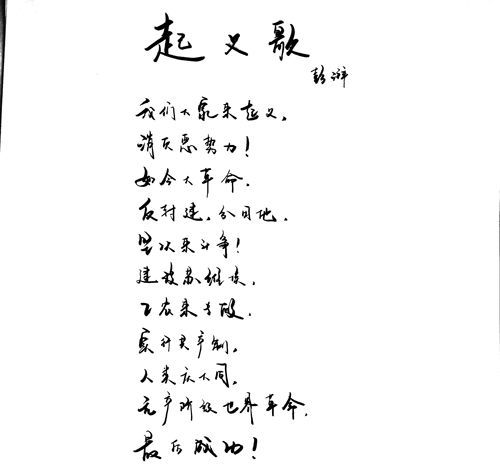 起义歌
彭湃
我们大家来起义,
消灭恶势力!
如今大革命.
反封建,分田地.
坚决来斗争!
建设苏维埃.
工农来专政.
实行共产制,
人类庆大同,
无产阶级世界革命.
最后成功!